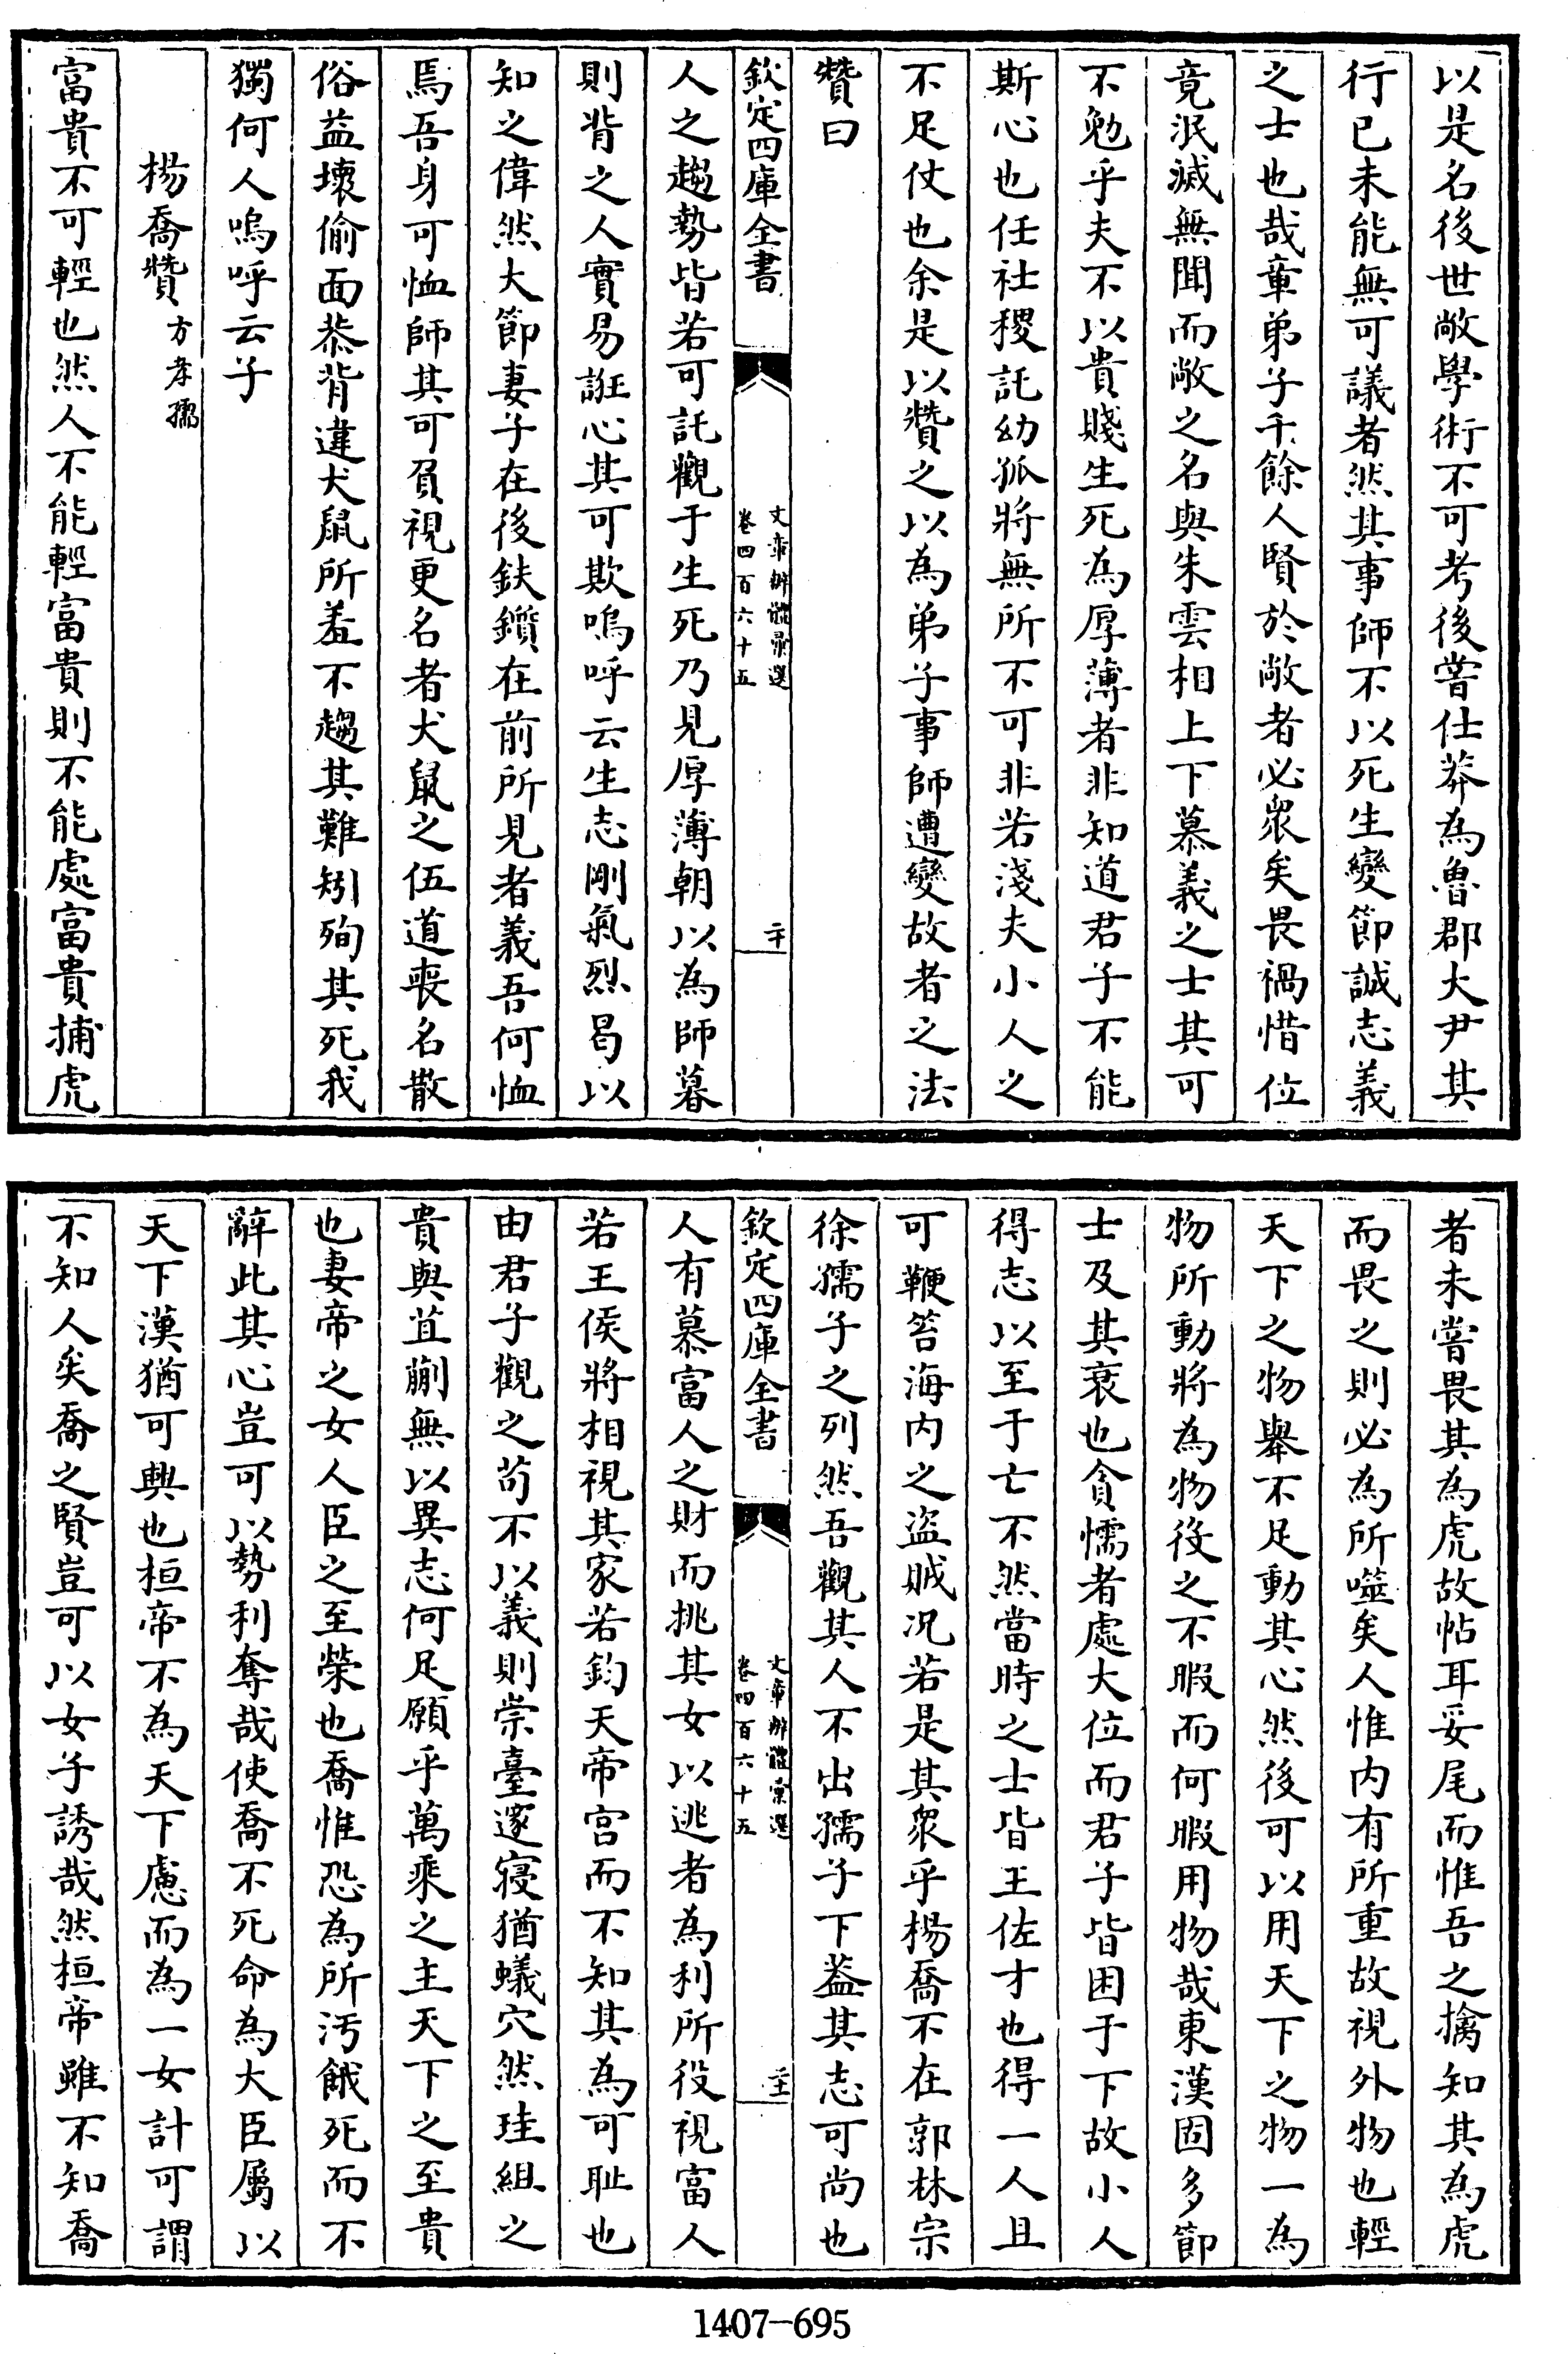 以是名後世敞學術不可考後嘗仕莽為魯郡大尹其
行已未能無可議者然其事師不以死生變節誠志義
之士也哉章弟子千餘人賢於敞者必衆矣畏禍惜位
竟泯滅無聞而敞之名與朱雲相上下慕義之士其可
不勉乎夫不以貴賤生死為厚薄者非知道君子不能
斯心也任社稷託幼孤將無所不可非若淺夫小人之
不足仗也余是以贊之以為弟子事師遭變故者之法
贊曰
欽定四庫全書
文章辨體彙選
卷四百六十五
二十
人之趨勢皆若可託觀于生死乃見厚薄朝以為師暮
則背之人實易誑心其可欺嗚呼云生志剛氣烈曷以
知之偉然大節妻子在後鈇鑕在前所見者義吾何恤
焉吾身可恤師其可負視更名者犬鼠之伍道喪名散
俗益壞偷面恭背違犬鼠所羞不趨其難矧殉其死我
獨何人嗚呼云子
楊喬贊 方孝孺
富貴不可輕也然人不能輕富貴則不能處富貴捕虎
者未嘗畏其為虎故帖耳妥尾而惟吾之擒知其為虎
而畏之則必為所噬矣人惟内有所重故視外物也輕
天下之物舉不足動其心然後可以用天下之物一為
物所動將為物役之不暇而何暇用物哉東漢固多節
士及其衰也貪懦者處大位而君子皆困于下故小人
得志以至于亡不然當時之士皆王佐才也得一人且
可鞭笞海内之盜賊况若是其衆乎楊喬不在郭林宗
徐孺子之列然吾觀其人不出孺子下葢其志可尚也
欽定四庫全書
文章辨體彙選
卷四百六十五
二十一
人有慕富人之財而挑其女以逃者為利所役視富人
若王侯將相視其家若鈞天帝宫而不知其為可耻也
由君子觀之苟不以義則崇臺邃寢猶蟻穴然珪組之
貴與苴蒯無以異志何足願乎萬乘之主天下之至貴
也妻帝之女人臣之至榮也喬惟恐為所汚餓死而不
辭此其心豈可以勢利奪哉使喬不死命為大臣屬以
天下漢猶可興也桓帝不為天下慮而為一女計可謂
不知人矣喬之賢豈可以女子誘哉然桓帝雖不知喬
1407-695